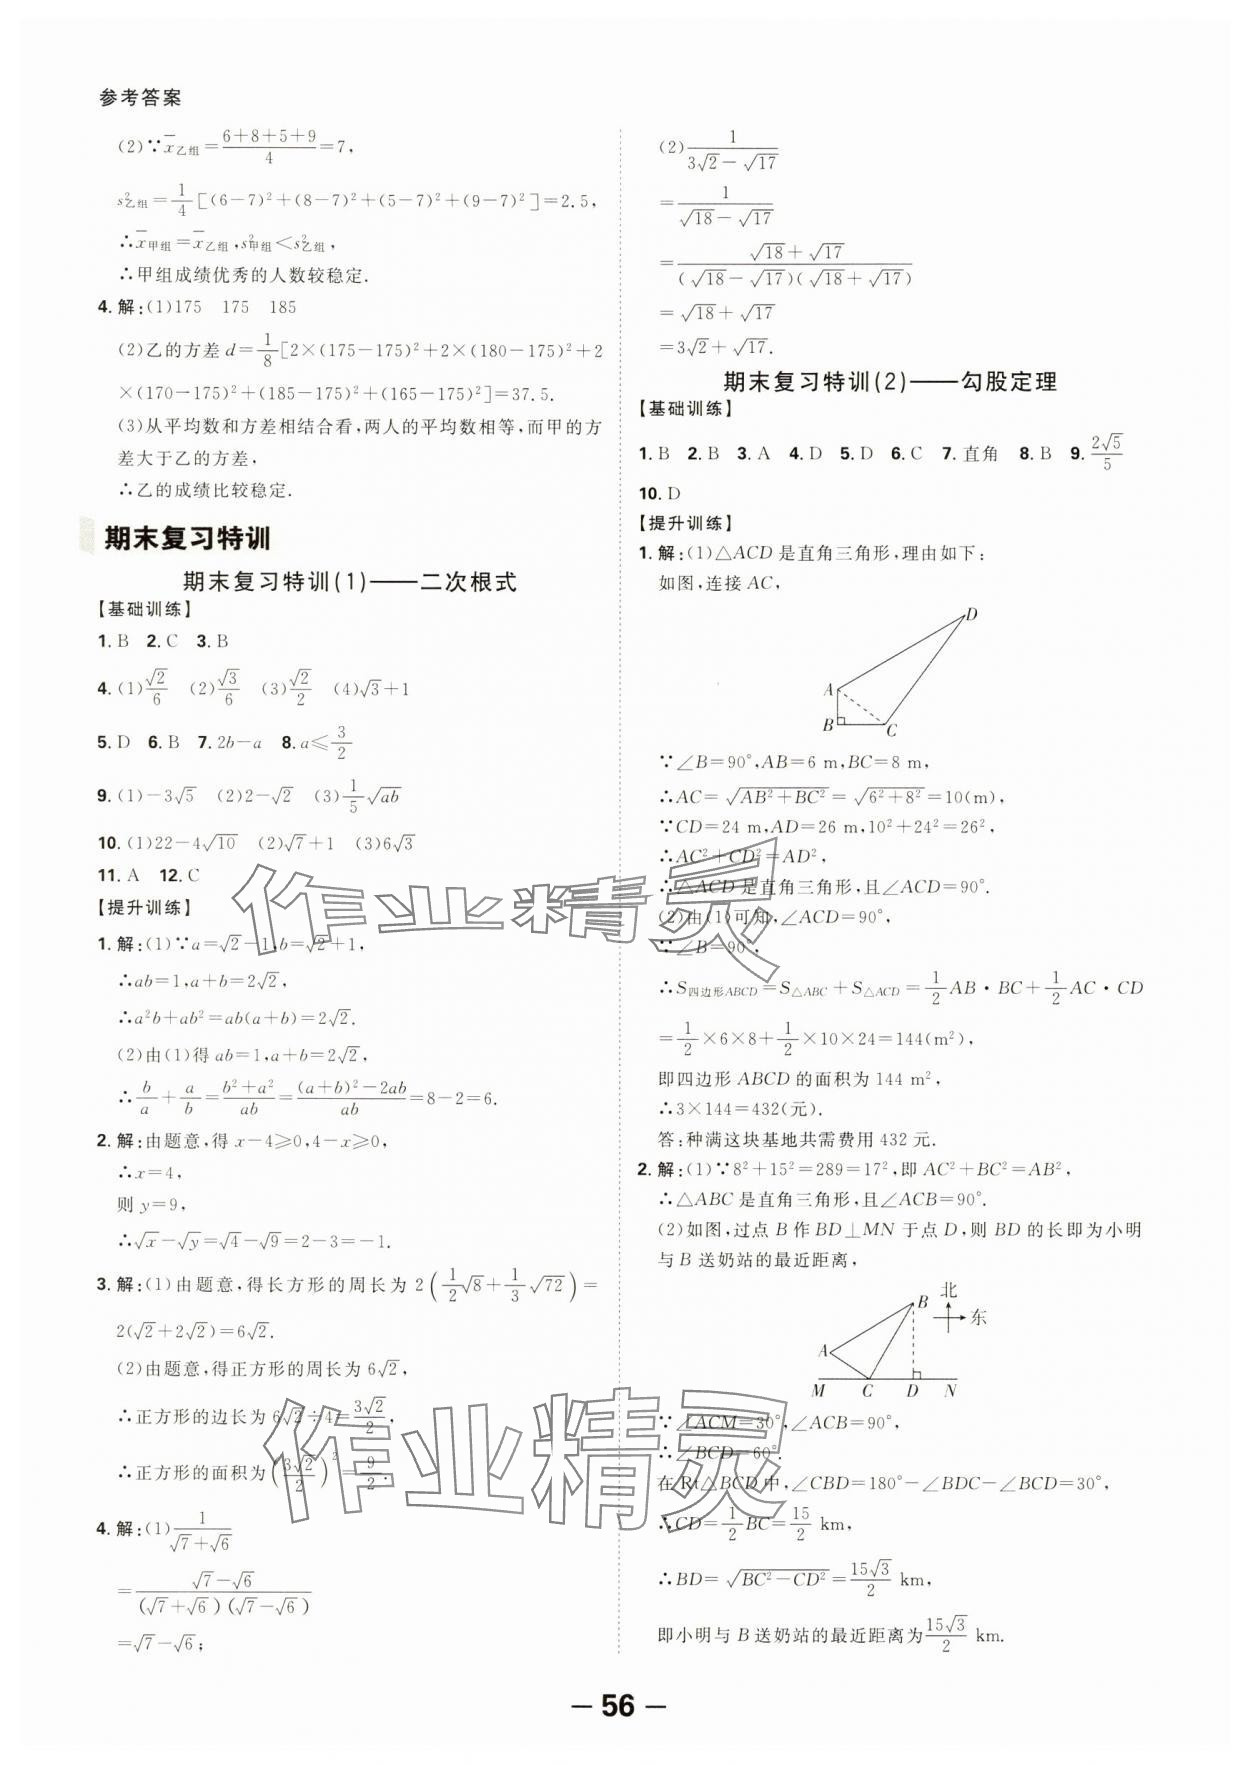 参考答案
(2)∵x̄乙组=(6+8+5+9)/4=7,
s²乙组=1/4[(6-7)²+(8-7)²+(5-7)²+(9-7)²]=2.5,
∴x̄甲组=x̄乙组,s²甲组<s²乙组,
∴甲组成绩优秀的人数较稳定.
4.解:(1)175 175 185
(2)乙的方差 d=1/8[2×(175-175)²+2×(180-175)²+2
×(170-175)²+(185-175)²+(165-175)²]=37.5.
(3)从平均数和方差相结合看,两人的平均数相等,而甲的方
差大于乙的方差,
∴乙的成绩比较稳定.
期末复习特训
期末复习特训(1)——二次根式
【基础训练】
1.B 2.C 3.B
4.(1)√2/6 (2)√3/6 (3)√2/2 (4)√3+1
5.D 6.B 7.2b-a 8.a≤3/2
9.(1)-3√5 (2)2-√2 (3)1/5√ab
10.(1)22-4√10 (2)√7+1 (3)6√3
11.A 12.C
【提升训练】
1.解:(1)∵a=√2-1,b=√2+1,
∴ab=1,a+b=2√2,
∴a²b+ab²=ab(a+b)=2√2.
(2)由(1)得 ab=1,a+b=2√2,
∴b/a+a/b=(b²+a²)/ab=((a+b)²-2ab)/ab=8-2=6.
2.解:由题意,得 x-4≥0,4-x≥0,
∴x=4,
则 y=9,
∴√x-√y=√4-√9=2-3=-1.
3.解:(1)由题意,得长方形的周长为 2(1/2√8+1/3√72)=
2(√2+2√2)=6√2.
(2)由题意,得正方形的周长为 6√2,
∴正方形的边长为 6√2÷4=3√2/2,
∴正方形的面积为(3√2/2)²=9/2.
4.解:(1)1/(√7+√6)
=(√7-√6)/((√7+√6)(√7-√6))
=√7-√6;
(2)1/(3√2-√17)
=1/(√18-√17)
=(√18+√17)/((√18-√17)(√18+√17))
=√18+√17
=3√2+√17.
期末复习特训(2)——勾股定理
【基础训练】
1.B 2.B 3.A 4.D 5.D 6.C 7.直角 8.B 9.2√5/5
10.D
【提升训练】
1.解:(1)△ACD 是直角三角形,理由如下:
如图,连接 AC,
D
A
B
C
∵∠B=90°,AB=6 m,BC=8 m,
∴AC=√(AB²+BC²)=√(6²+8²)=10(m),
∵CD=24 m,AD=26 m,10²+24²=26²,
∴AC²+CD²=AD²,
∴△ACD 是直角三角形,且∠ACD=90°.
(2)由(1)可知,∠ACD=90°,
∵∠B=90°,
∴S四边形ABCD=S△ABC+S△ACD=1/2AB·BC+1/2AC·CD
=1/2×6×8+1/2×10×24=144(m²),
即四边形 ABCD 的面积为 144 m²,
∴3×144=432(元).
答:种满这块基地共需费用 432 元.
2.解:(1)∵8²+15²=289=17²,即 AC²+BC²=AB²,
∴△ABC 是直角三角形,且∠ACB=90°.
(2)如图,过点 B 作 BD⊥MN 于点 D,则 BD 的长即为小明
与 B 送奶站的最近距离,
北
B
东
A
M C D N
∵∠ACM=30°,∠ACB=90°,
∴∠BCD=60°.
在 Rt△BCD 中,∠CBD=180°-∠BDC-∠BCD=30°,
∴CD=1/2BC=15/2 km,
∴BD=√(BC²-CD²)=15√3/2 km,
即小明与 B 送奶站的最近距离为15√3/2 km.
作业精灵
作业精灵
— 56 —